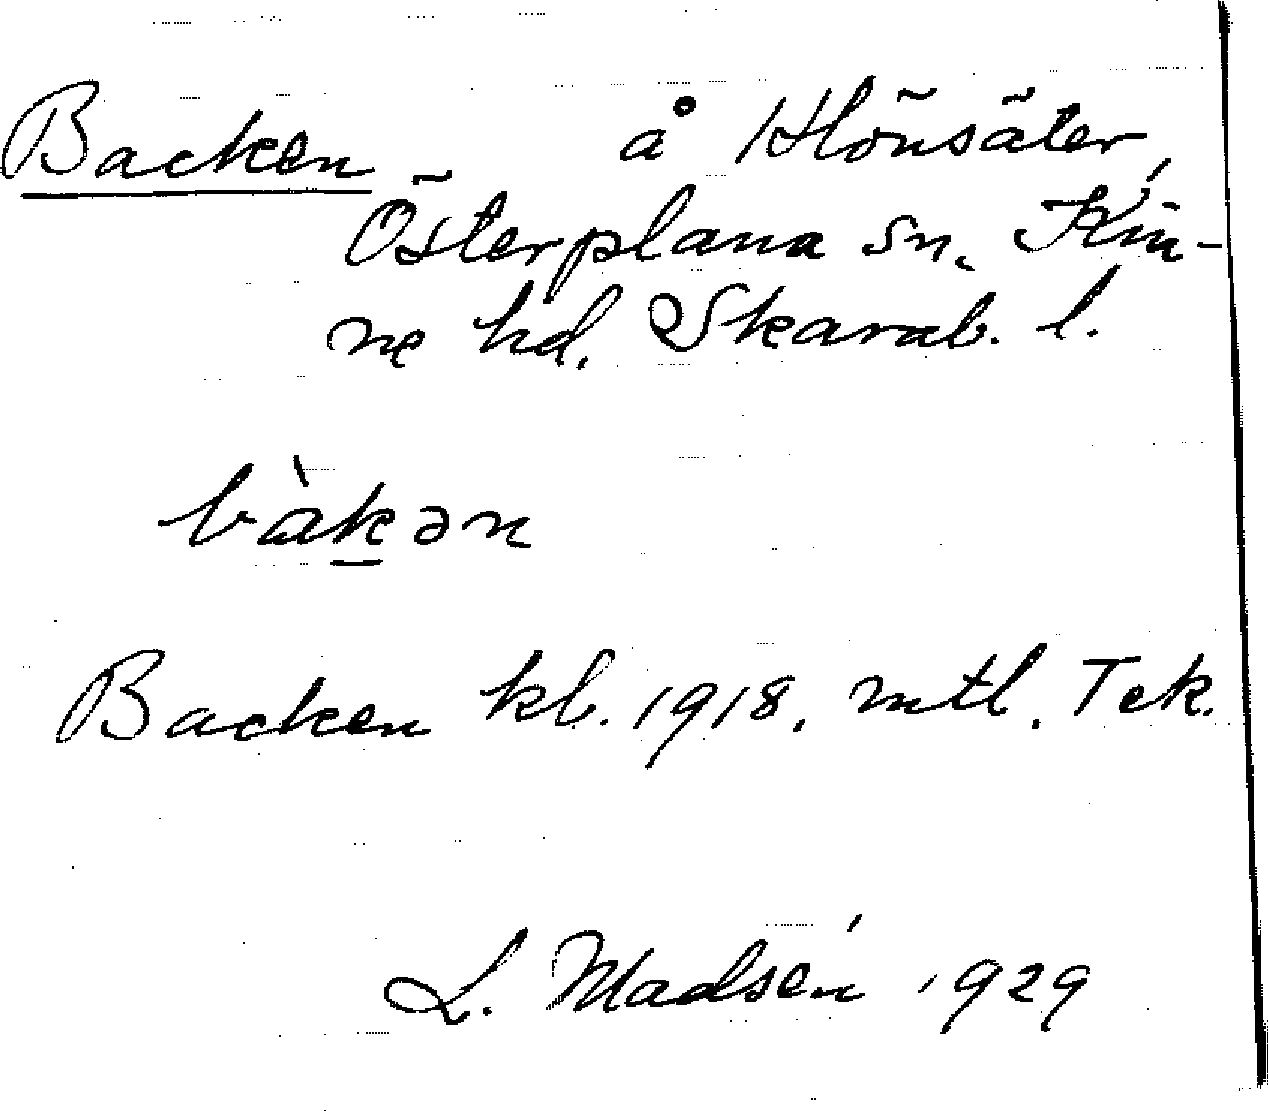 Backen å Hönsäter,
Österplana sn. Kin-
ne hd. Skarab. l.
bàkən
Backen kb. 1918, mtl. Tek.
L. Madsén 1929